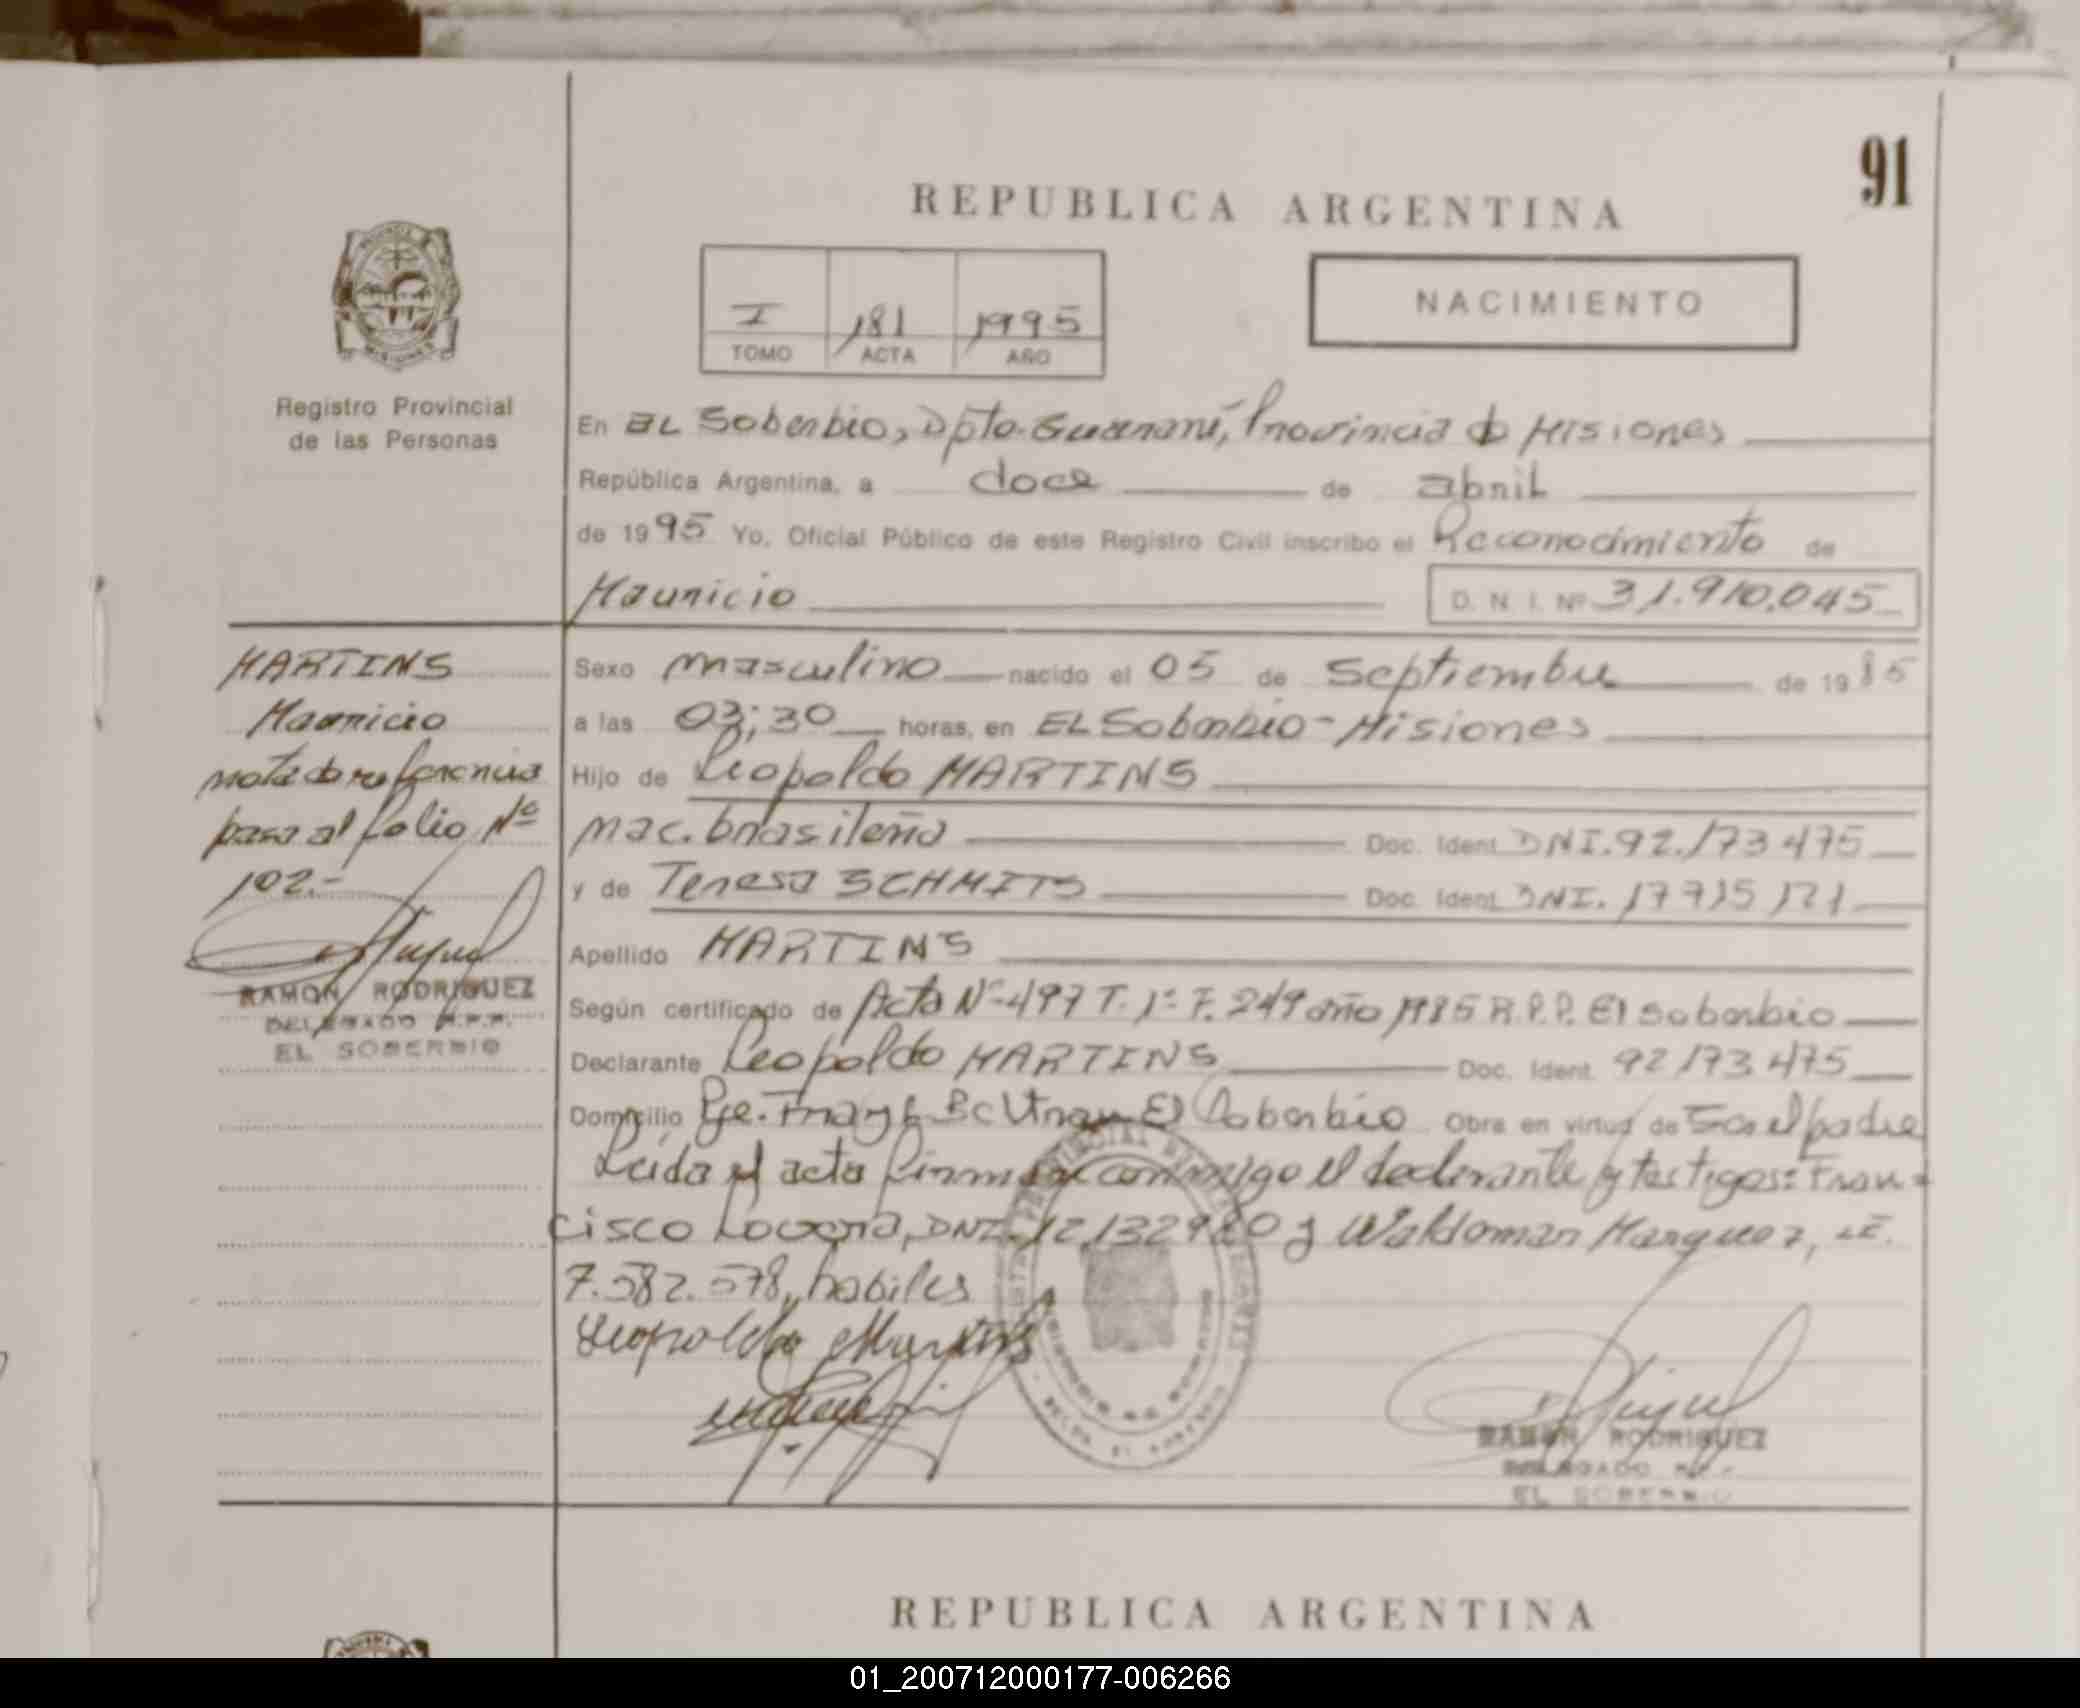 91
REPUBLICA ARGENTINA
I 181 1995
TOMO ACTA AÑO
NACIMIENTO
Registro Provincial
de las Personas
En EL Soberbio, Dpto. Guaraní, Provincia de Misiones
República Argentina, a doce de abril
de 1995 Yo, Oficial Público de este Registro Civil inscribo el Reconocimiento de
Mauricio D. N. I. Nº 31.910.045
MARTINS
Mauricio
nota de referencia
pasa al folio Nº
102.-
RAMON RODRIGUEZ
DELEGADO R.P.P.
EL SOBERBIO
Sexo masculino nacido el 05 de Septiembre de 1985
a las 03:30 horas, en EL Soberbio - Misiones
Hijo de Leopoldo MARTINS
nac. brasileña Doc. Ident. DNI. 92.173 475
y de Teresa SCHMITS Doc. Ident. DNI. 17 715 121
Apellido MARTINS
Según certificado de Acta Nº 497 T. 1º F. 249 año 1985 R.P.P. El Soberbio
Declarante Leopoldo MARTINS Doc. Ident. 92 173 475
Domicilio Pje. Fray L Beltran El Soberbio Obra en virtud de Ser el padre
Leída el acta firman conmigo el declarante y testigos: Fran-
cisco DNI. 12,132920 y Waldomar Marquez, LE.
7.582.578, habiles
Leopoldo Martins
RAMON RODRIGUEZ
DELEGADO R.P.P.
EL SOBERBIO
REPUBLICA ARGENTINA
01_200712000177-006266